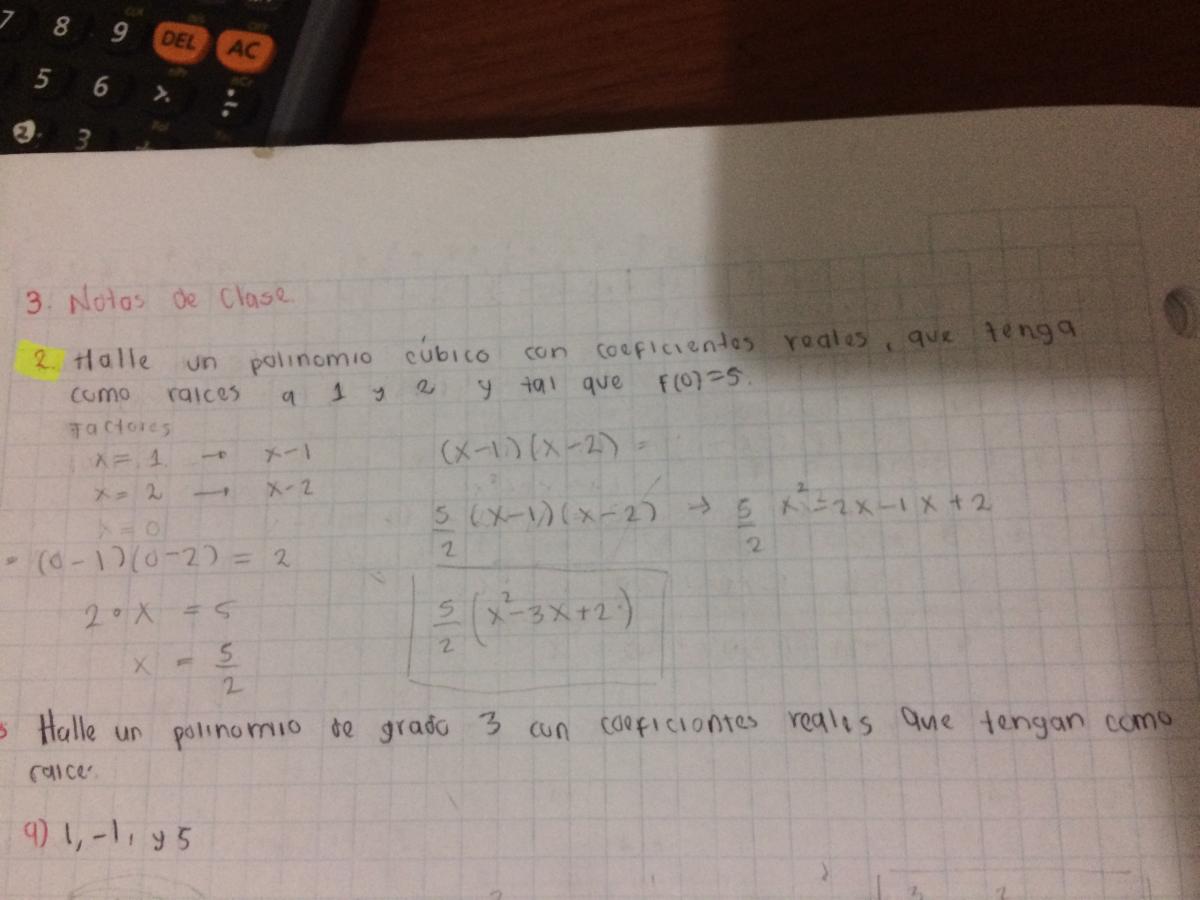 7 8 9 DEL AC
5 6 × ÷
2 3
3. Notas de Clase
2. Halle un polinomio cúbico con coeficientes reales, que tenga
como raices a 1 y 2 y tal que F(0)=5.
Factores
x = 1 → x-1
x = 2 → x-2
x = 0
(0-1)(0-2) = 2
2 • x = 5
x = 5/2
(x-1)(x-2) =
5/2 (x-1)(x-2) → 5/2 x²-2x-1x+2
5/2 (x²-3x+2)
Halle un polinomio de grado 3 con coeficientes reales que tengan como
raice
a) 1, -1, y 5